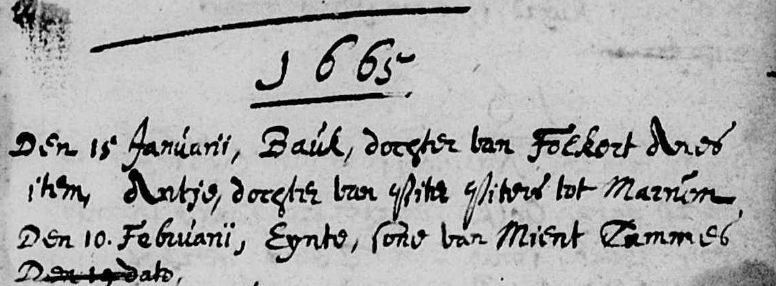 1665
Den 15 Januarii, Bauk, dochter van Folkert Anes
item, Antje, dochter van Piter Piters tot Marnem
Den 10. Februarii, Eynte, sone van Mient Tammes
Den 19 dato,